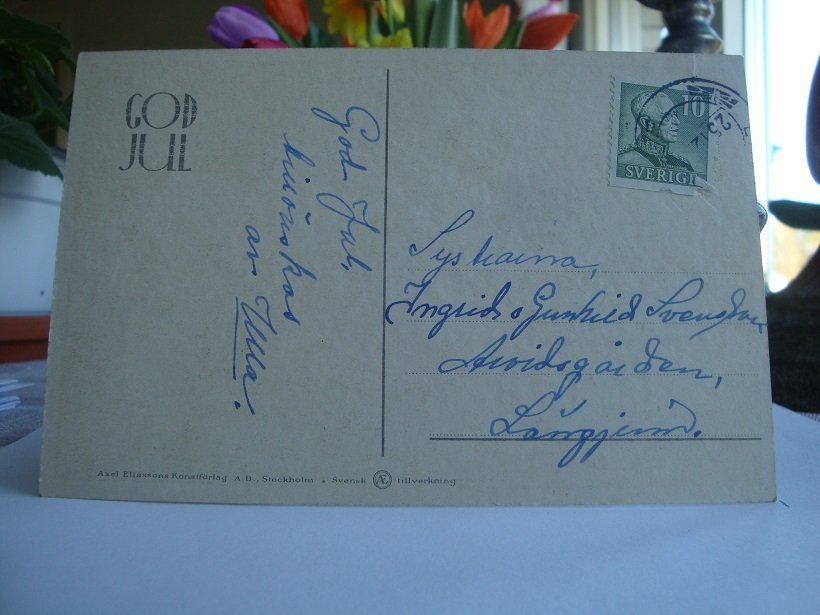 GOD
JUL
God Jul,
tillönskas
av Ulla.
10
SVERIGE
Systrarna,
Ingrid o Gunhild Svensson
Arvidsgården,
Långjum.
Axel Eliassons Konstförlag A.B., Stockholm • Svensk Æ tillverkning